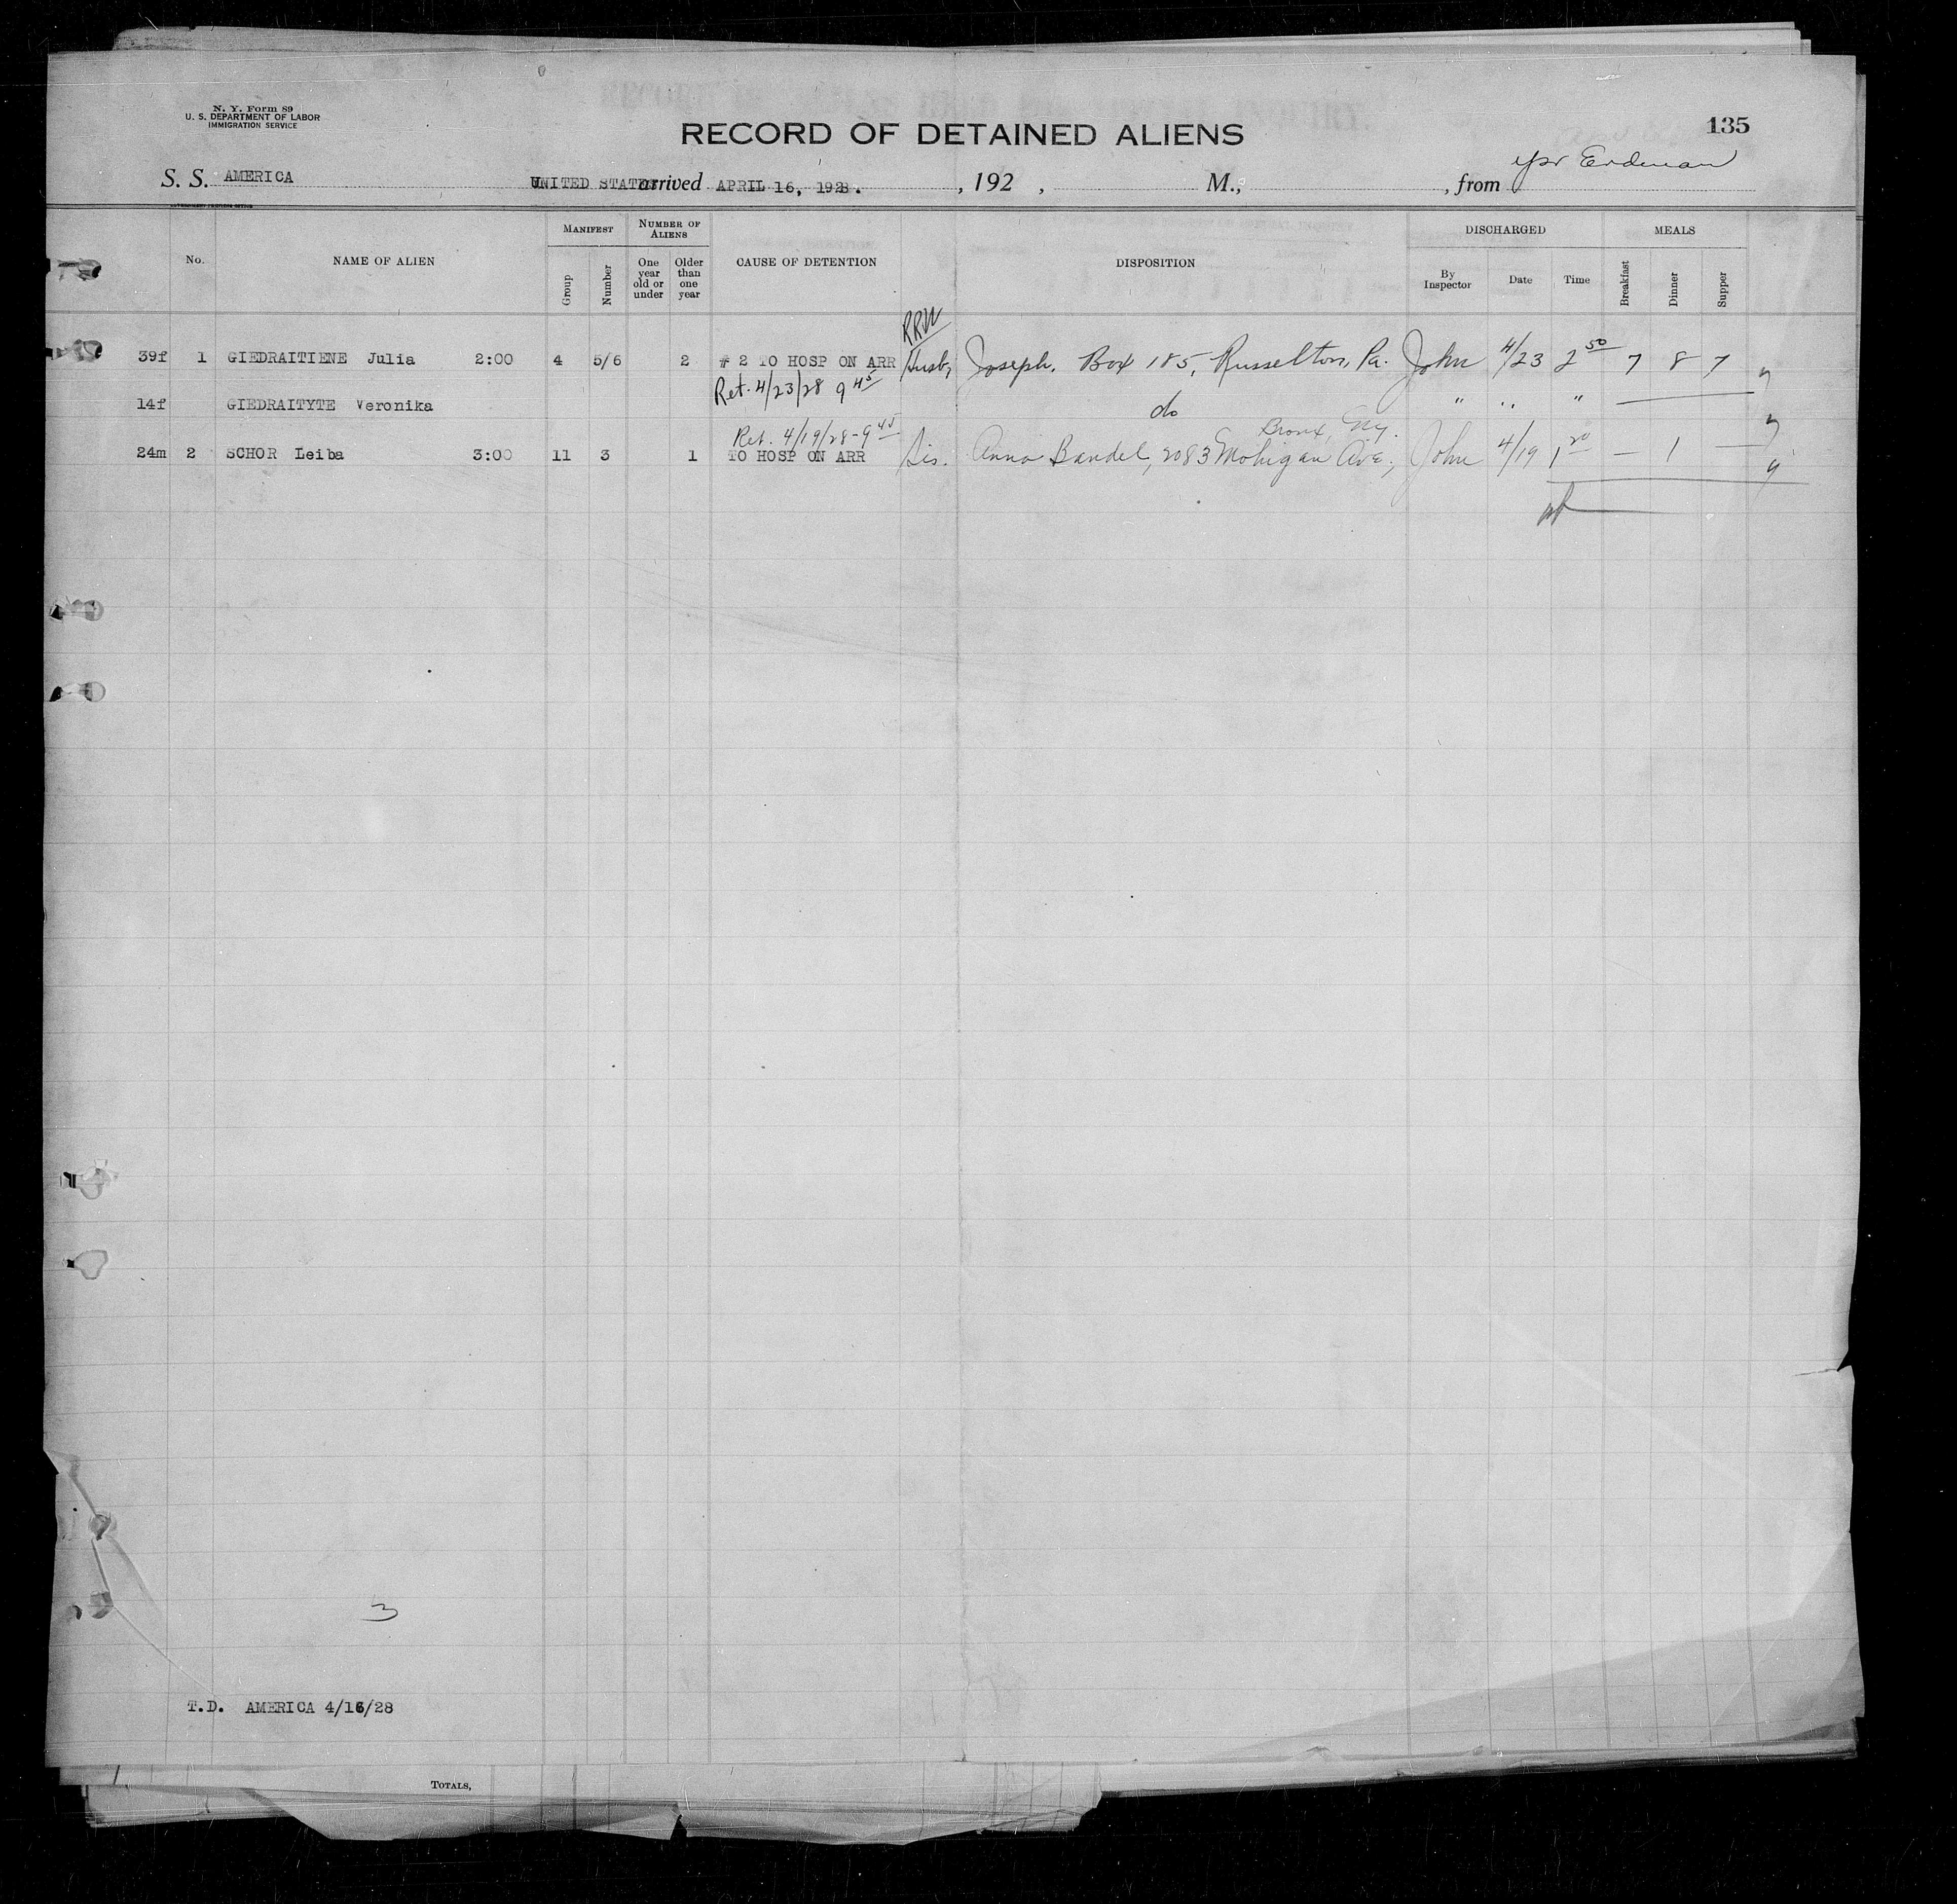 N. Y. Form 89
U. S. DEPARTMENT OF LABOR
IMMIGRATION SERVICE
RECORD OF DETAINED ALIENS
135
S. S. AMERICA UNITED STATES arrived APRIL 16, 1928. , 192 , M., , from Erdman
MANIFEST NUMBER OF ALIENS DISCHARGED MEALS
No. NAME OF ALIEN Group Number One year old or under Older than one year CAUSE OF DETENTION DISPOSITION By Inspector Date Time Breakfast Dinner Supper
39f 1 GIEDRAITIENE Julia 2:00 4 5/6 2 # 2 TO HOSP ON ARR Husb, Joseph, Box 185, Russelton, Pa. John 4/23 2 50 7 8 7
Ret. 4/23/28 9 45
14f GIEDRAITYTE Veronika do " " "
Ret. 4/19/28-9 45 Bronx, N.Y.
24m 2 SCHOR Leiba 3:00 11 3 1 TO HOSP ON ARR Sis. Anna Bandel, 2083 Mohigan Ave., John 4/19 1 20 — 1 —
3
T.D. AMERICA 4/16/28
TOTALS,